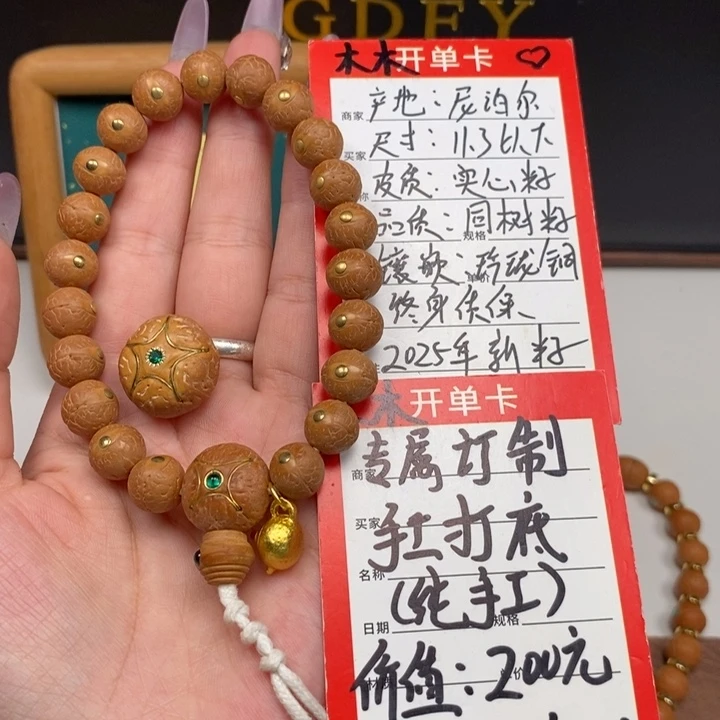 GDFY
木木开单卡
商家 产地：尼泊尔
买家 尺寸：11.3以下
皮质：实心籽
品质：同树籽
规格
镶嵌：玲珑铜
终身质保
2025年新籽
木开单卡
商家 专属订制
买家 手工打底
名称 (纯手工)
日期 规格
价值：200元